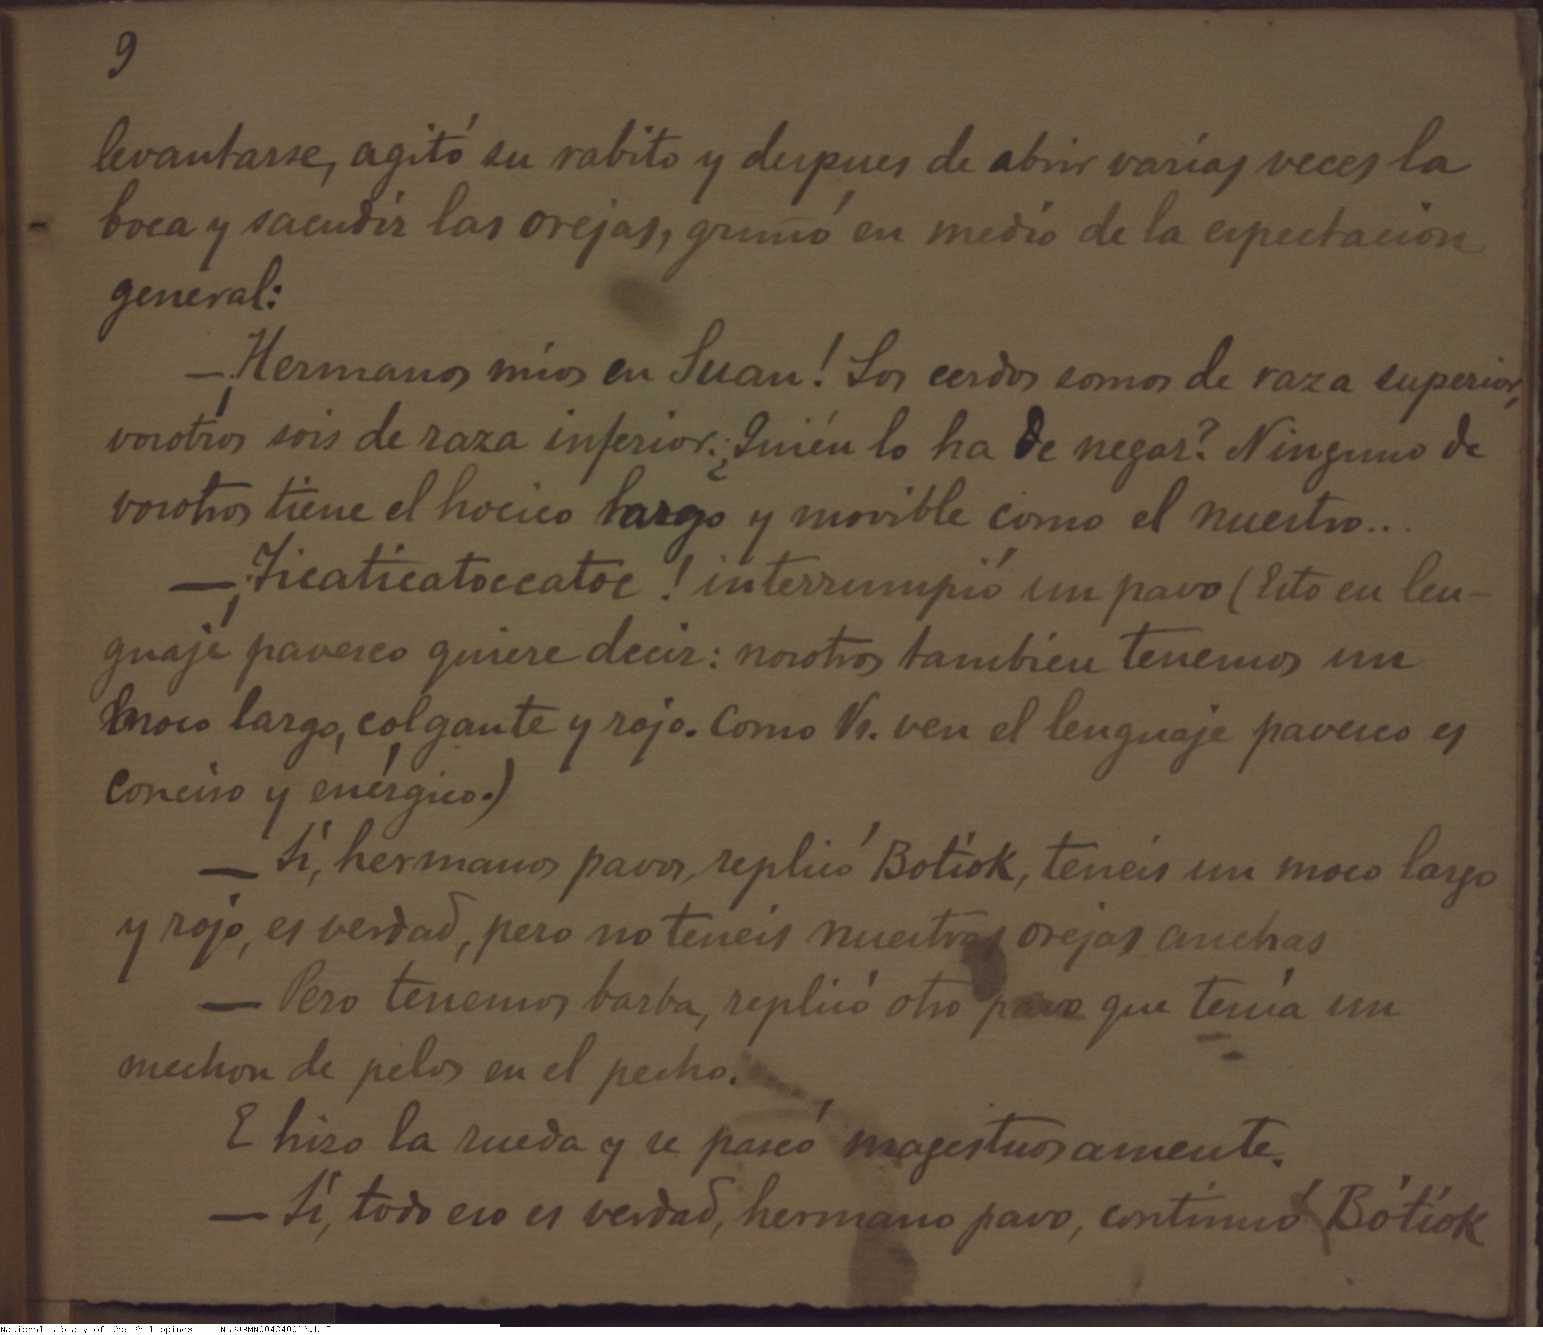 9
levantarse, agitó su rabito y despues de abrir varias veces la
boca y sacudir las orejas, gruñó en medio de la espectacion
general:
—¡Hermanos mios en Suan! Los cerdos somos de raza superior,
vosotros sois de raza inferior. ¿Quién lo ha de negar? Ninguno de
vosotros tiene el hocico largo y movible como el nuestro...
—¡Ticaticatoccatoc! interrumpió un pavo (Esto en len-
guaje pavesco quiere decir: nosotros tambien tenemos un
moco largo, colgante y rojo. Como Vs. ven el lenguaje pavesco es
¡conciso y enérgico.)
— Sí, hermanos pavos, replicó Botiok, teneis un moco largo
y rojo, es verdad, pero no teneis nuestras orejas anchas
— Pero tenemos barba, replicó otro pavo que tenía un
mechon de pelos en el pecho.
E hizo la rueda y se paseó magestuosamente.
— Sí, todo eso es verdad, hermano pavo, continuó Botiok
National Library of the Philippines